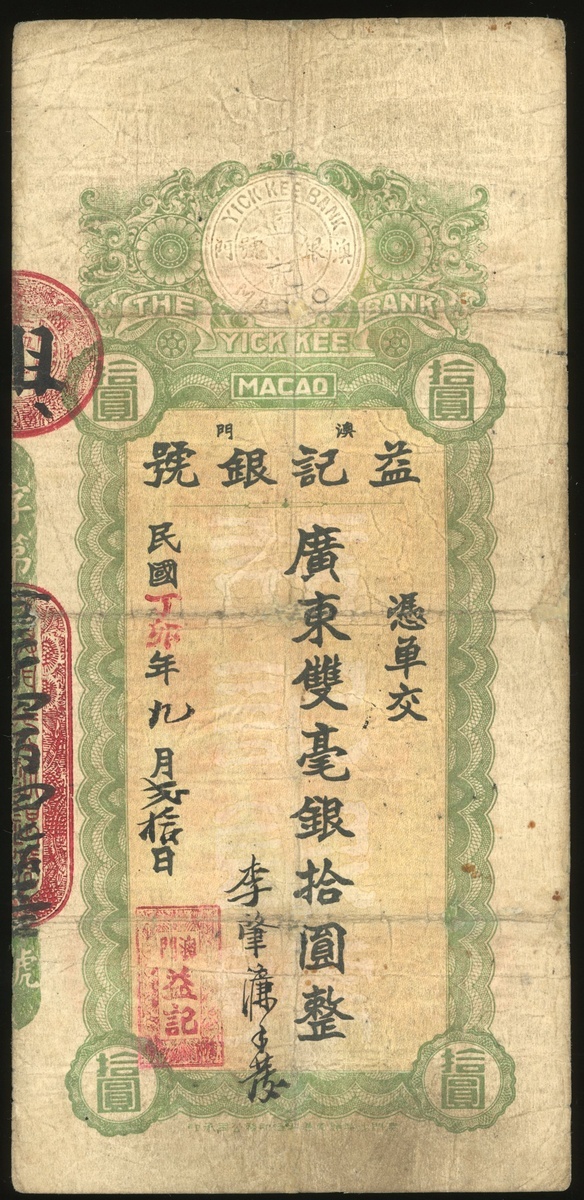 YICK KEE BANK
澳 銀 號 門
MACAO
THE BANK
YICK KEE
MACAO
拾圓
拾圓
澳門
益記銀號
憑單交
廣東雙毫銀拾圓整
李肇濂手發
民國丁卯年九月弍拾日
澳門
益記
字第
號
拾圓
拾圓